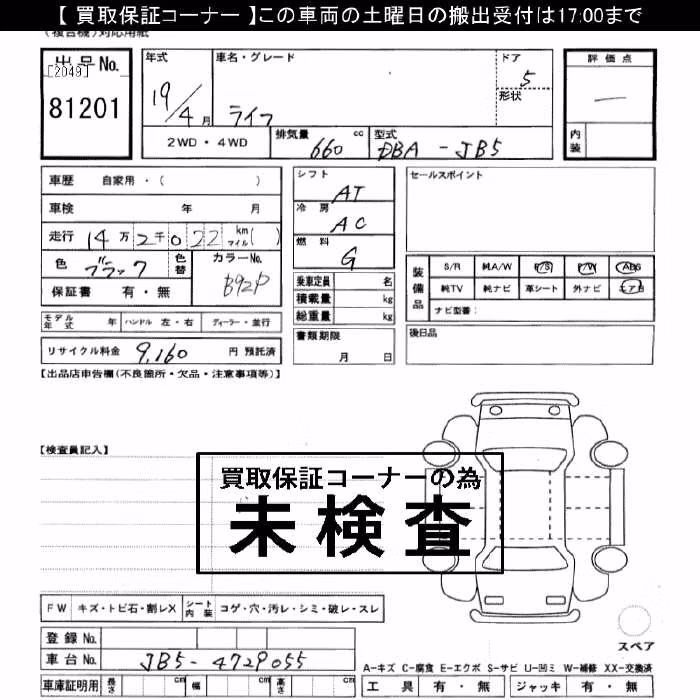 【 買取保証コーナー 】この車両の土曜日の搬出受付は17:00まで
(複合機)対応用紙
出品No.
[2049]
81201
年式
19/4月
車名・グレード
ライフ
ドア
5
形状
評価点
―
内装
2WD・4WD
排気量
660 cc
型式
DBA - JB5
車歴 自家用・( )
車検 年 月
走行 14万2千022 km マイル( )
色 ブラック
色替
カラーNo.
B92P
保証書 有・無
シフト
AT
冷房
AC
燃料
G
乗車定員 名
積載量 kg
総重量 kg
書類期限
月 日
セールスポイント
装備品
S/R 純A/W P/S P/W ABS
純TV 純ナビ 革シート 外ナビ エアB
ナビ型番:
後日品
モデル年式 年 ハンドル 左・右 ディーラー・並行
リサイクル料金 9,160 円 預託済
【出品店申告欄(不良箇所・欠品・注意事項等)】
【検査員記入】
買取保証コーナーの為
未検査
FW キズ・トビ石・割レX シート内装 コゲ・穴・汚レ・シミ・破レ・スレ
登録No.
車台No. JB5-4729055
車庫証明用 長さ cm 幅 cm 高さ cm
スペア
A-キズ C-腐食 E-エクボ S-サビ U-凹ミ W-補修 XX-交換済
工具 有・無 ジャッキ 有・無